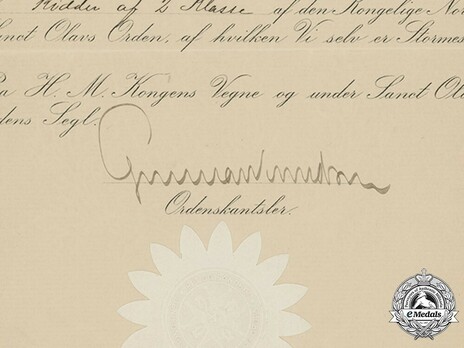 Ridder af 2 Klasse af den Kongelige No
anct Olavs Orden, af hvilken Vi selv er Stormes
a H. M. Kongens Vegne og under Sanct Ola
dens Segl.
Ordenskantsler.
eMedals